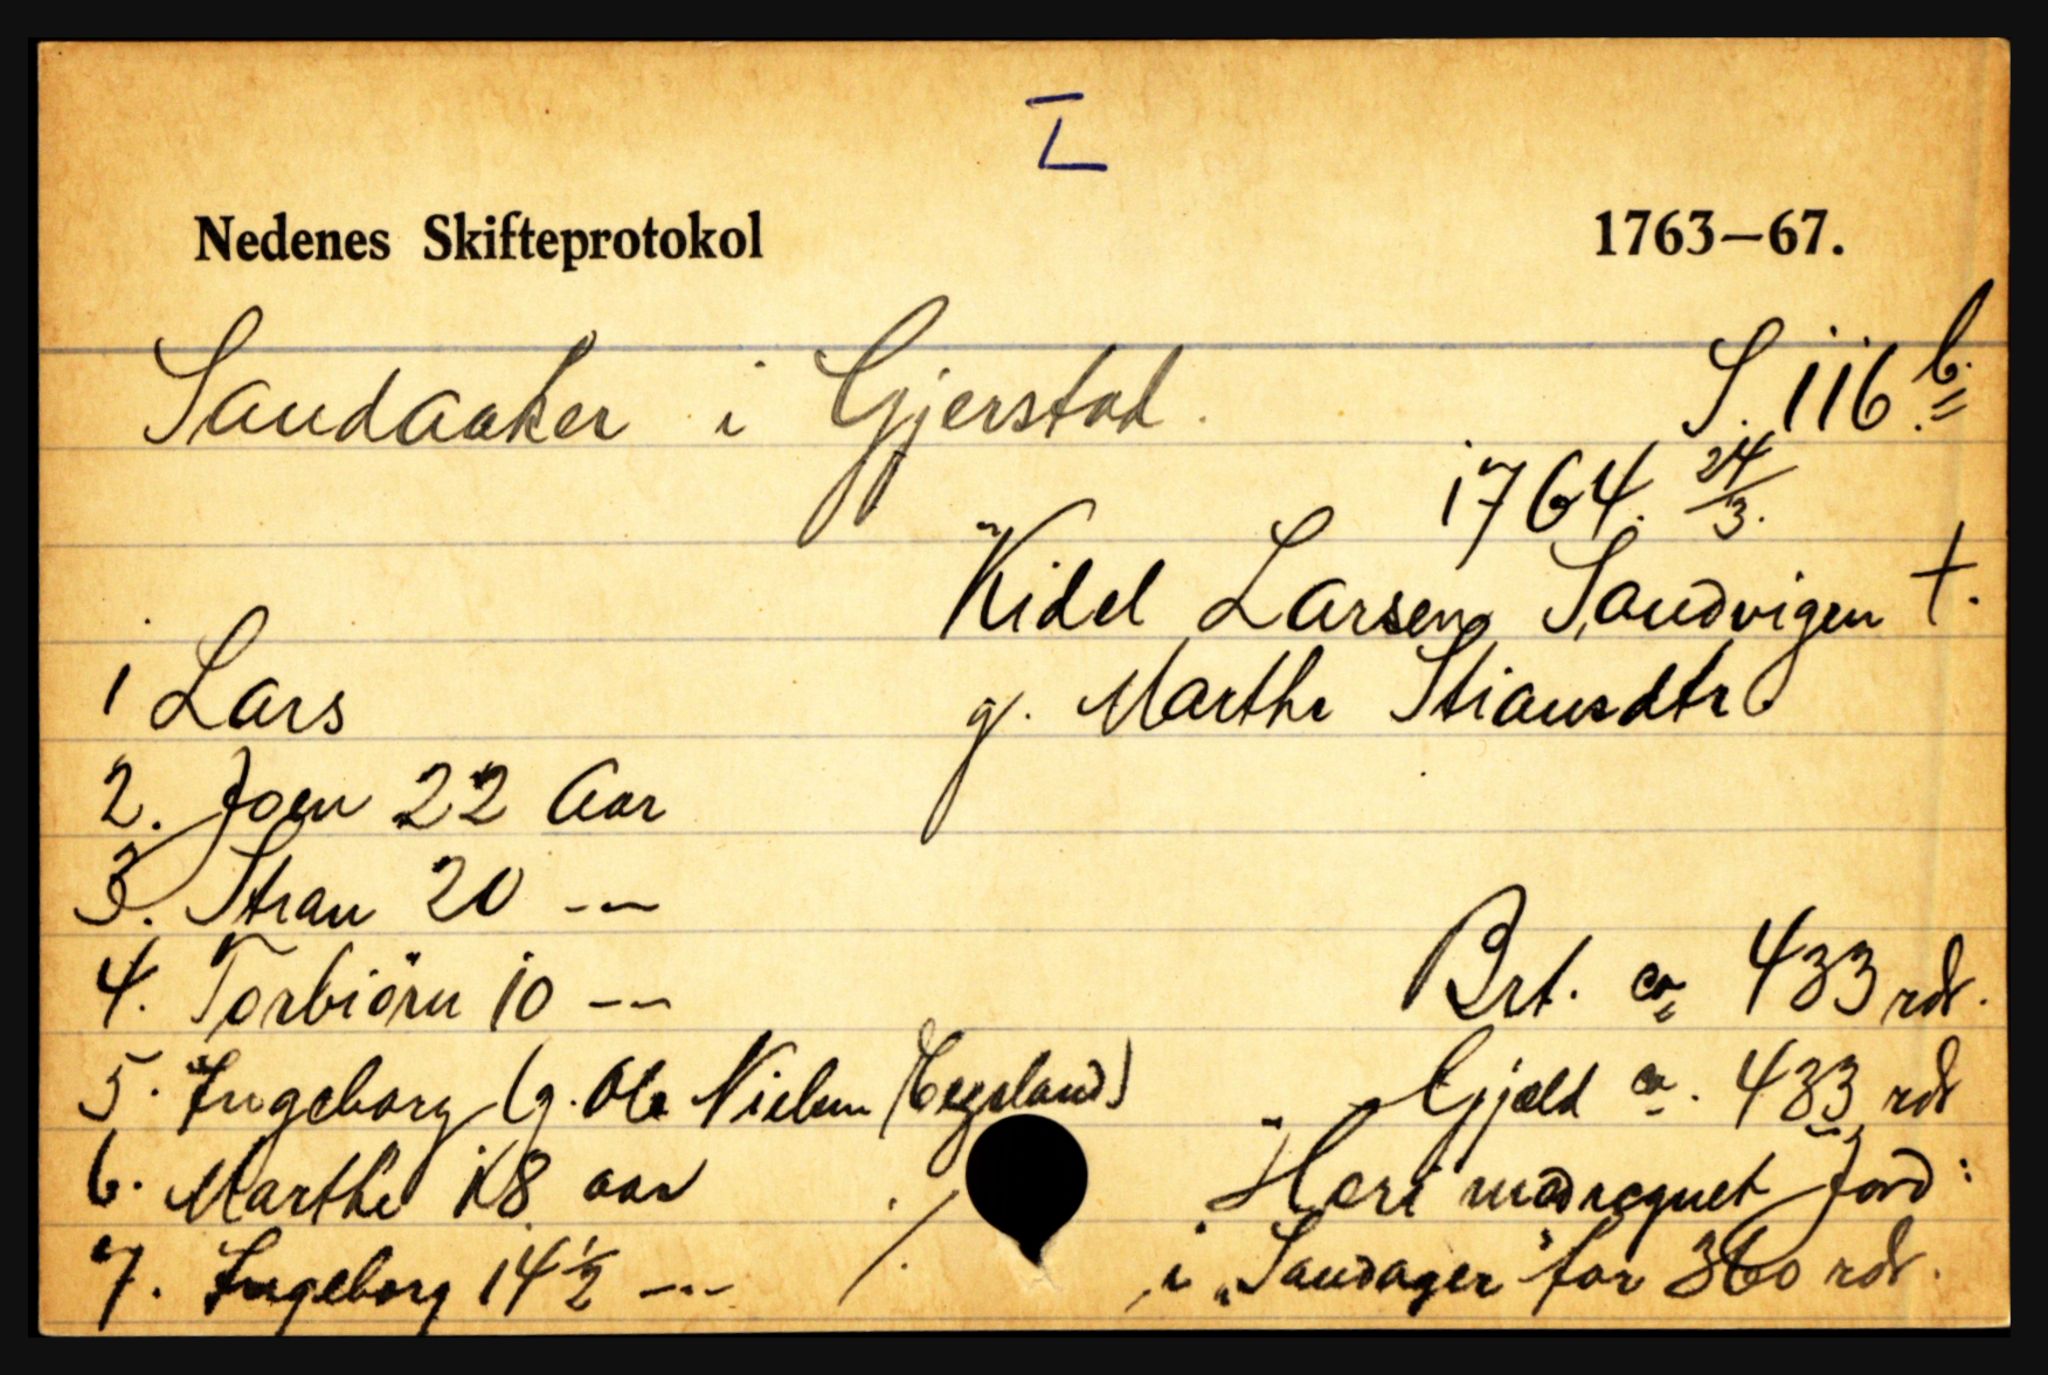 I
Nedenes Skifteprotokol 1763–67.
Sandaaker i Gjerstad. S. 116 b.
1764. 24/3.
Kidel Larsen Sandvigen †.
g. Marthe Stiansdtr
1 Lars
2. Joen 22 Aar
3. Stian 20 ---
4. Torbiörn 10 ---
5. Ingeborg (g. Ole Nielsen Eegeland)
6. Marthe 18 aar
7. Ingeborg 14 1/2 ---
Brt. ca 433 rdr.
Gjæld ca. 433 rdr
Heri medregnet Jord:
i "Sandager" for 360 rdr.